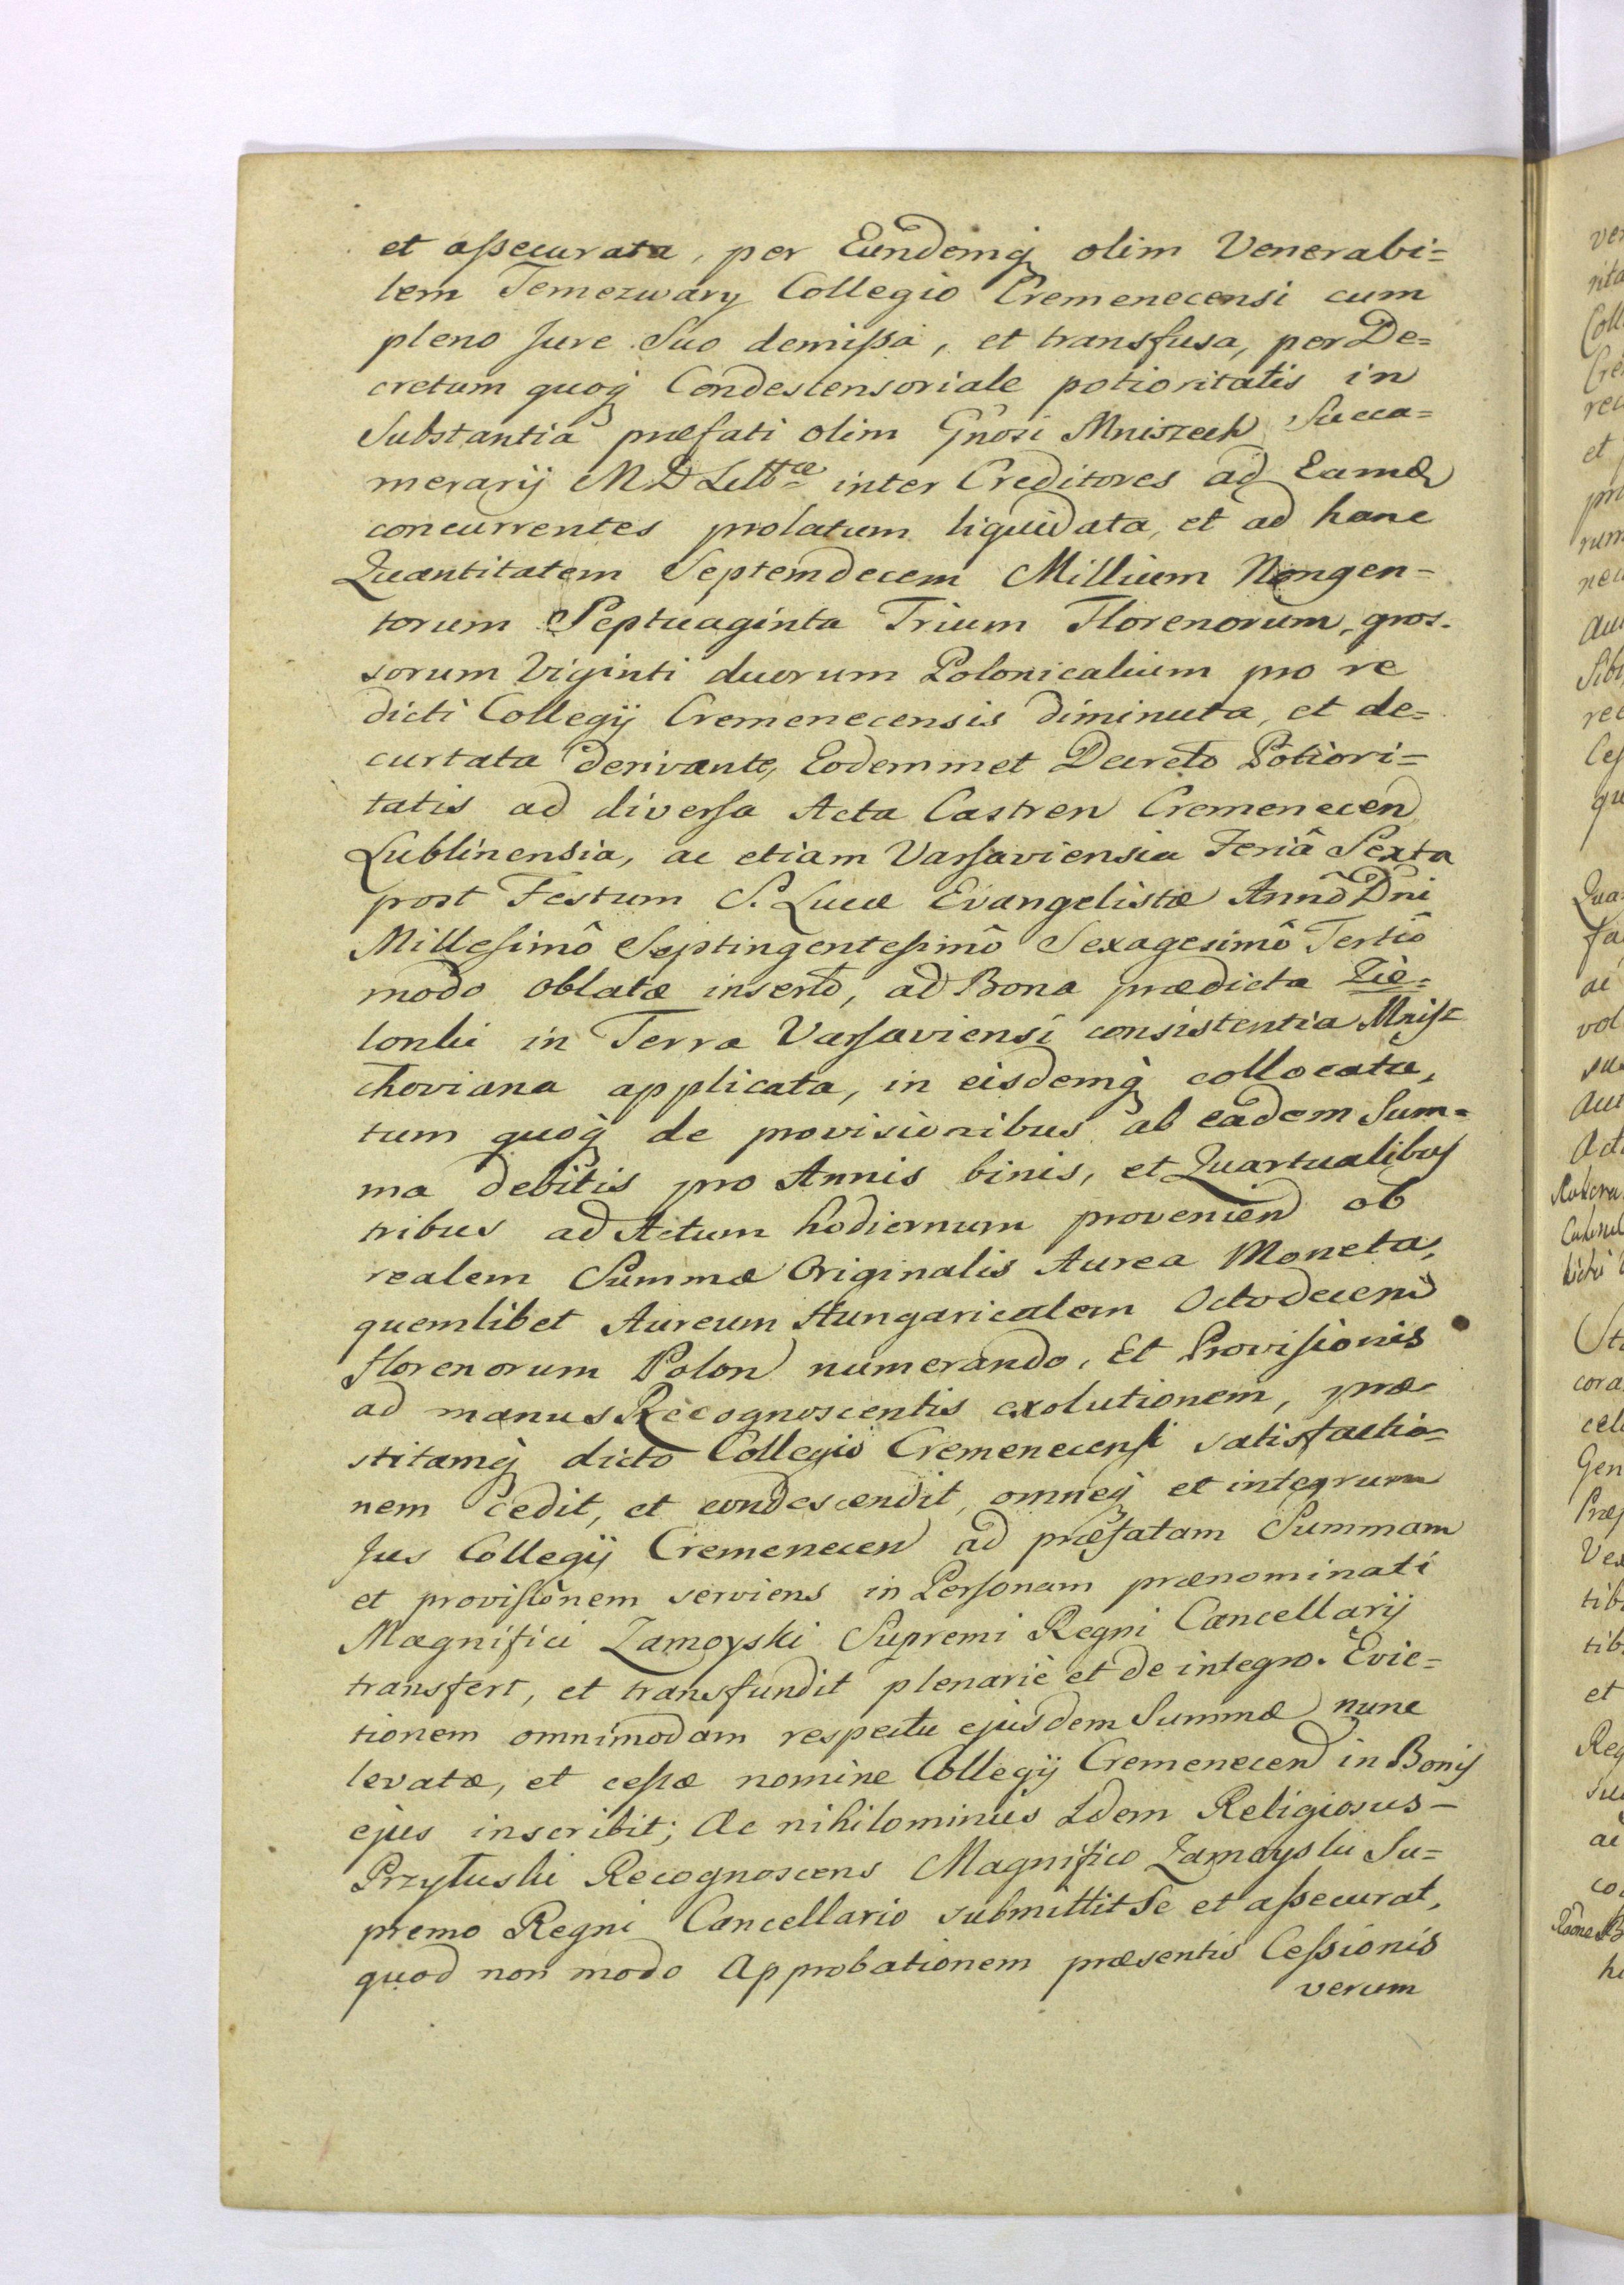 et aſsecurata, per Eundemq̃ olim Venerabi=
lem Temezwary Collegio Cremenecensi cum
pleno Jure Suo demiſsa, et transfusa, per De=
cretum quoq̃ Condescensoriale potioritatis in
Substantia præfati olim Gñosi Mniszech Succa=
merarij M D Litt̃æ inter Creditores ad Eamd
concurrentes prolatum liquidata, et ad hanc
Quantitatem Septemdecem Millium Nongen=
torum Septuaginta Trium Florenorum, gros.
sorum Viginti duorum Polonicalium pro re
dicti Collegij Cremenecensis diminuta, et de=
curtata derivante, Eodemmet Decreto Potiori=
tatis ad diverſa Acta Castren Cremenecen
Lublinensia, ac etiam Varſaviensia Feriâ Sexta
post Festum S. Lucæ Evangelistæ Annõ Dñi
Milleſimô Septingenteſimô Sexagesimô Tertiô
modo oblatæ insertô, ad Bona prædicta Zie=
lonki in Terra Varſaviensi consistentia Mniſz
choviana applicata, in eisdemq̃ collocata,
tum quoq̃ de provisionibus ab eadem Sum=
ma debitis pro Annis binis, et Quartualibus
tribus ad Actum hodiernum provenien ob
realem Summæ Originalis Aurea Moneta,
quemlibet Aureum Hungaricalem Octodecem
florenorum Polon numerando, Et Proviſionis
ad manus Recognoscentis exolutionem, præ
stitamq̃ dicto Collegio Cremenecenſi satisfactio=
nem cedit, et condescendit, omneq̃ et integrum
Jus Collegij Cremenecen ad præfatam Summam
et proviſionem serviens in Perſonam prænominati
Magnifici Zamoyski Supremi Regni Cancellarij
transfert, et transfundit plenariè et de integro. Evic=
tionem omnimodam respectu ejusdem Summæ nunc
levatæ, et ceſsæ nomine Collegij Cremenecen in Bonis
ejus inscribit; Ac nihilominus Idem Religiosus-
Przyłuski Recognoscens Magnifico Zamoyski Su=
premo Regni Cancellario submittit Se et aſsecurat,
quod non modo Approbationem præsentis Ceſsionis
verum